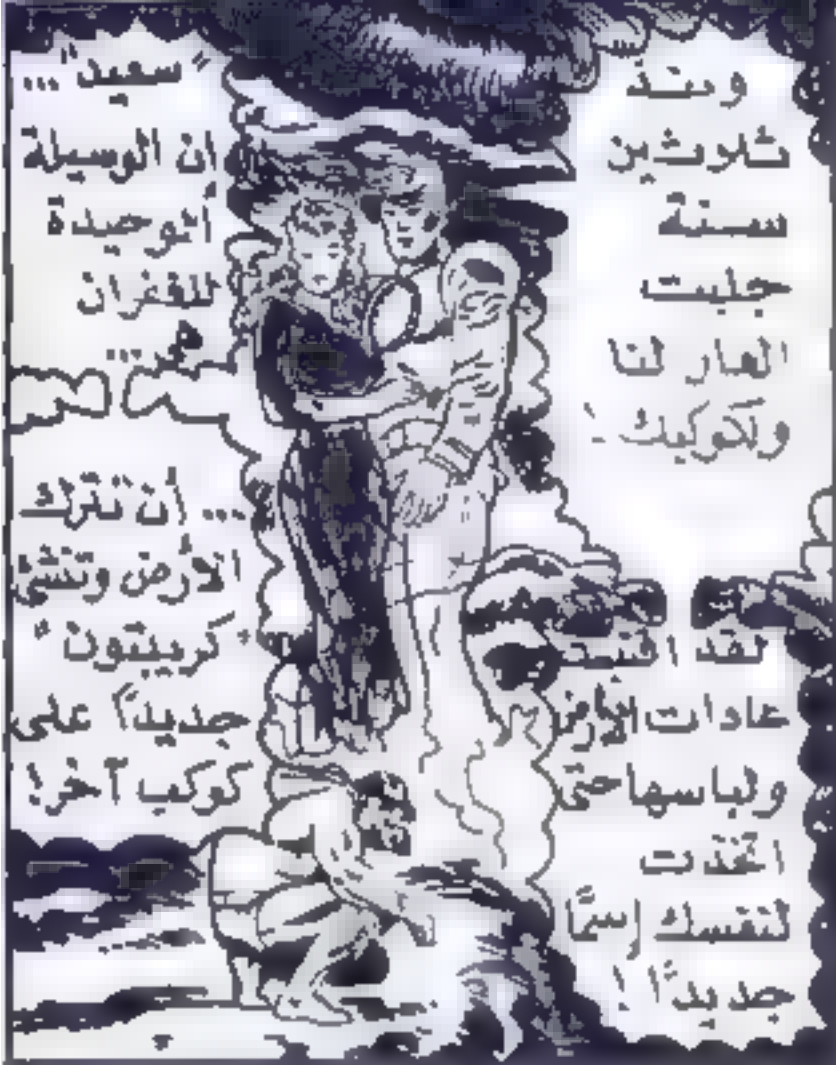 ومنذ
ثلوثين
سنة
جلبت
العار لنا
ولكوكبك!
لقد اقتبست
عادات الأرض
ولباسها حتى
اتخذت
لنفسك إسمًا
جديدًا!
"سعيد"...
ان الوسيلة
ألوحيدة
للغفران
هي...
...أن تترك
الأرض وتنشئ
"كريبتون"
جديدًا على
كوكب آخر!